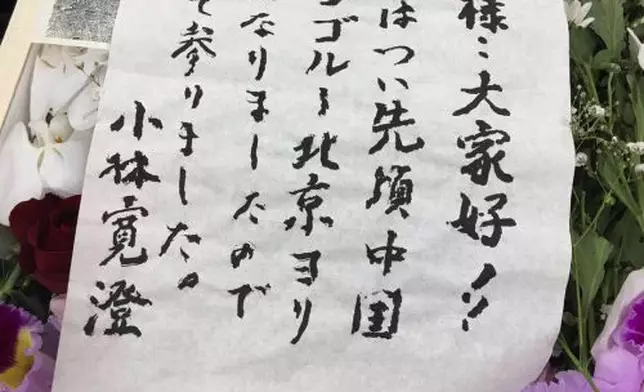 様…大家好!!
はつい先頃中国
ゴル〜北京ヨリ
なりましたので
て参りました。
小林寛澄